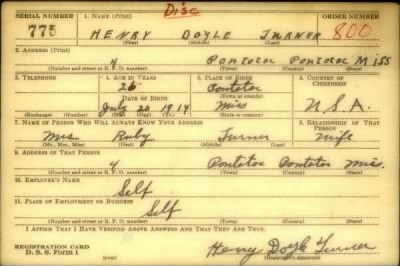 Disc
SERIAL NUMBER 1. NAME (Print) ORDER NUMBER
775 HENRY DOYLE TURNER 800
(First) (Middle) (Last)
2. ADDRESS (Print)
4 Pontotoc Pontotoc Miss
(Number and street or R. F. D. number) (Town) (County) (State)
3. TELEPHONE 4. AGE IN YEARS 5. PLACE OF BIRTH 6. COUNTRY OF CITIZENSHIP
26 Pontotoc
DATE OF BIRTH (Town or county)
July 20 1914 Miss U.S.A.
(Exchange) (Number) (Mo.) (Day) (Yr.) (State or country)
7. NAME OF PERSON WHO WILL ALWAYS KNOW YOUR ADDRESS 8. RELATIONSHIP OF THAT PERSON
Mrs Ruby Turner Wife
(Mr., Mrs., Miss) (First) (Middle) (Last)
9. ADDRESS OF THAT PERSON
4 Pontotoc Pontotoc Miss.
(Number and street or R. F. D. number) (Town) (County) (State)
10. EMPLOYER'S NAME
Self
11. PLACE OF EMPLOYMENT OR BUSINESS
Self
(Number and street or R. F. D. number) (Town) (County) (State)
I AFFIRM THAT I HAVE VERIFIED ABOVE ANSWERS AND THAT THEY ARE TRUE.
REGISTRATION CARD
D. S. S. Form 1 Henry Doyle Turner